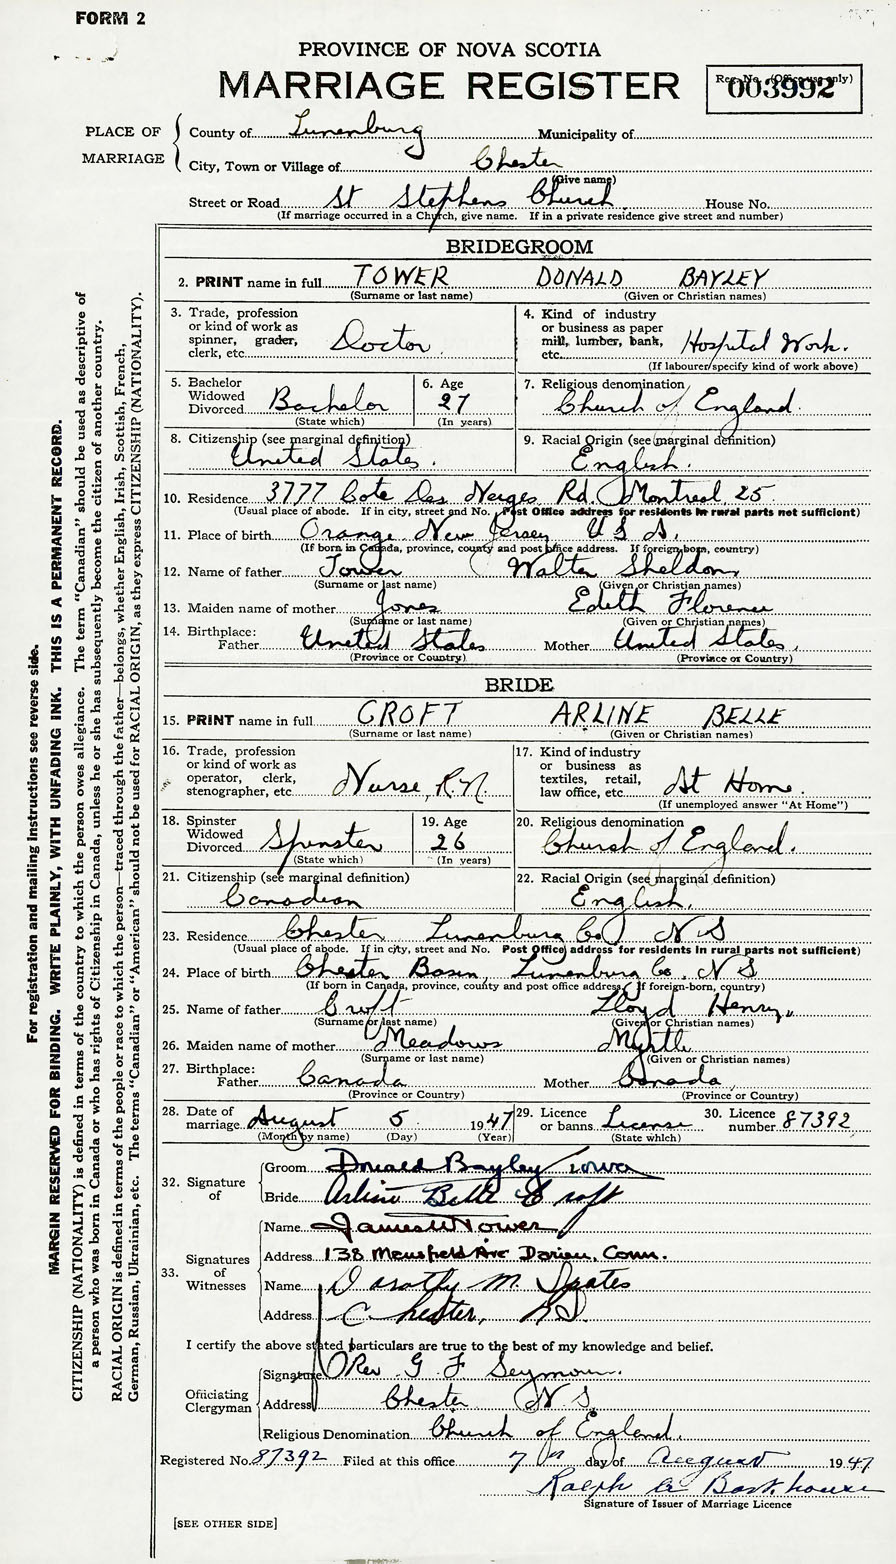 FORM 2
PROVINCE OF NOVA SCOTIA
MARRIAGE REGISTER
Reg. No. (Office use only)
003992
PLACE OF MARRIAGE
County of Lunenburg Municipality of
City, Town or Village of Chester
(Give name)
Street or Road St Stephens Church House No.
(If marriage occurred in a Church, give name. If in a private residence give street and number)
BRIDEGROOM
2. PRINT name in full TOWER DONALD BAYLEY
(Surname or last name) (Given or Christian names)
3. Trade, profession or kind of work as spinner, grader, clerk, etc. Doctor
4. Kind of industry or business as paper mill, lumber, bank, etc. Hospital Work.
(If labourer specify kind of work above)
5. Bachelor Widowed Divorced Bachelor
(State which)
6. Age 27
(In years)
7. Religious denomination Church of England.
8. Citizenship (see marginal definition) United States.
9. Racial Origin (see marginal definition) English.
10. Residence 3777 Cote Des Neiges Rd. Montreal 25
(Usual place of abode. If in city, street and No. Post Office address for residents in rural parts not sufficient)
11. Place of birth Orange New Jersey U S A.
(If born in Canada, province, county and post office address. If foreign-born, country)
12. Name of father Tower Walter Sheldon
(Surname or last name) (Given or Christian names)
13. Maiden name of mother Jones Edith Florence
(Surname or last name) (Given or Christian names)
14. Birthplace:
Father United States Mother United States.
(Province or Country) (Province or Country)
BRIDE
15. PRINT name in full CROFT ARLINE BELLE
(Surname or last name) (Given or Christian names)
16. Trade, profession or kind of work as operator, clerk, stenographer, etc. Nurse, R.N.
17. Kind of industry or business as textiles, retail, law office, etc. At Home.
(If unemployed answer "At Home")
18. Spinster Widowed Divorced Spinster
(State which)
19. Age 26
(In years)
20. Religious denomination Church of England.
21. Citizenship (see marginal definition) Canadian
22. Racial Origin (see marginal definition) English.
23. Residence Chester Lunenburg Co N S
(Usual place of abode. If in city, street and No. Post Office address for residents in rural parts not sufficient)
24. Place of birth Chester Basin, Lunenburg Co. N S
(If born in Canada, province, county and post office address. If foreign-born, country)
25. Name of father Croft Lloyd Henry
(Surname or last name) (Given or Christian names)
26. Maiden name of mother Meadows Myrtle
(Surname or last name) (Given or Christian names)
27. Birthplace:
Father Canada Mother Canada
(Province or Country) (Province or Country)
28. Date of marriage August 5 1947
(Month by name) (Day) (Year)
29. Licence or banns License
(State which)
30. Licence number 87392
32. Signature of
Groom Donald Bayley Tower
Bride Arline Belle Croft
33. Signatures of Witnesses
Name James W Tower
Address 138 Mansfield Ave Darien, Conn.
Name Dorothy M. Spates
Address Chester, N.S.
I certify the above stated particulars are true to the best of my knowledge and belief.
Officiating Clergyman
Signature Rev G F Seymour.
Address Chester N S.
Religious Denomination Church of England.
Registered No. 87392 Filed at this office 7th day of August 1947
Ralph
Signature of Issuer of Marriage Licence
[SEE OTHER SIDE]
For registration and mailing instructions see reverse side.
MARGIN RESERVED FOR BINDING. WRITE PLAINLY, WITH UNFADING INK. THIS IS A PERMANENT RECORD.
CITIZENSHIP (NATIONALITY) is defined in terms of the country to which the person owes allegiance. The term "Canadian" should be used as descriptive of
a person who was born in Canada or who has rights of Citizenship in Canada, unless he or she has subsequently become the citizen of another country.
RACIAL ORIGIN is defined in terms of the people or race to which the person—traced through the father—belongs, whether English, Irish, Scottish, French,
German, Russian, Ukrainian, etc. The terms "Canadian" or "American" should not be used for RACIAL ORIGIN, as they express CITIZENSHIP (NATIONALITY).